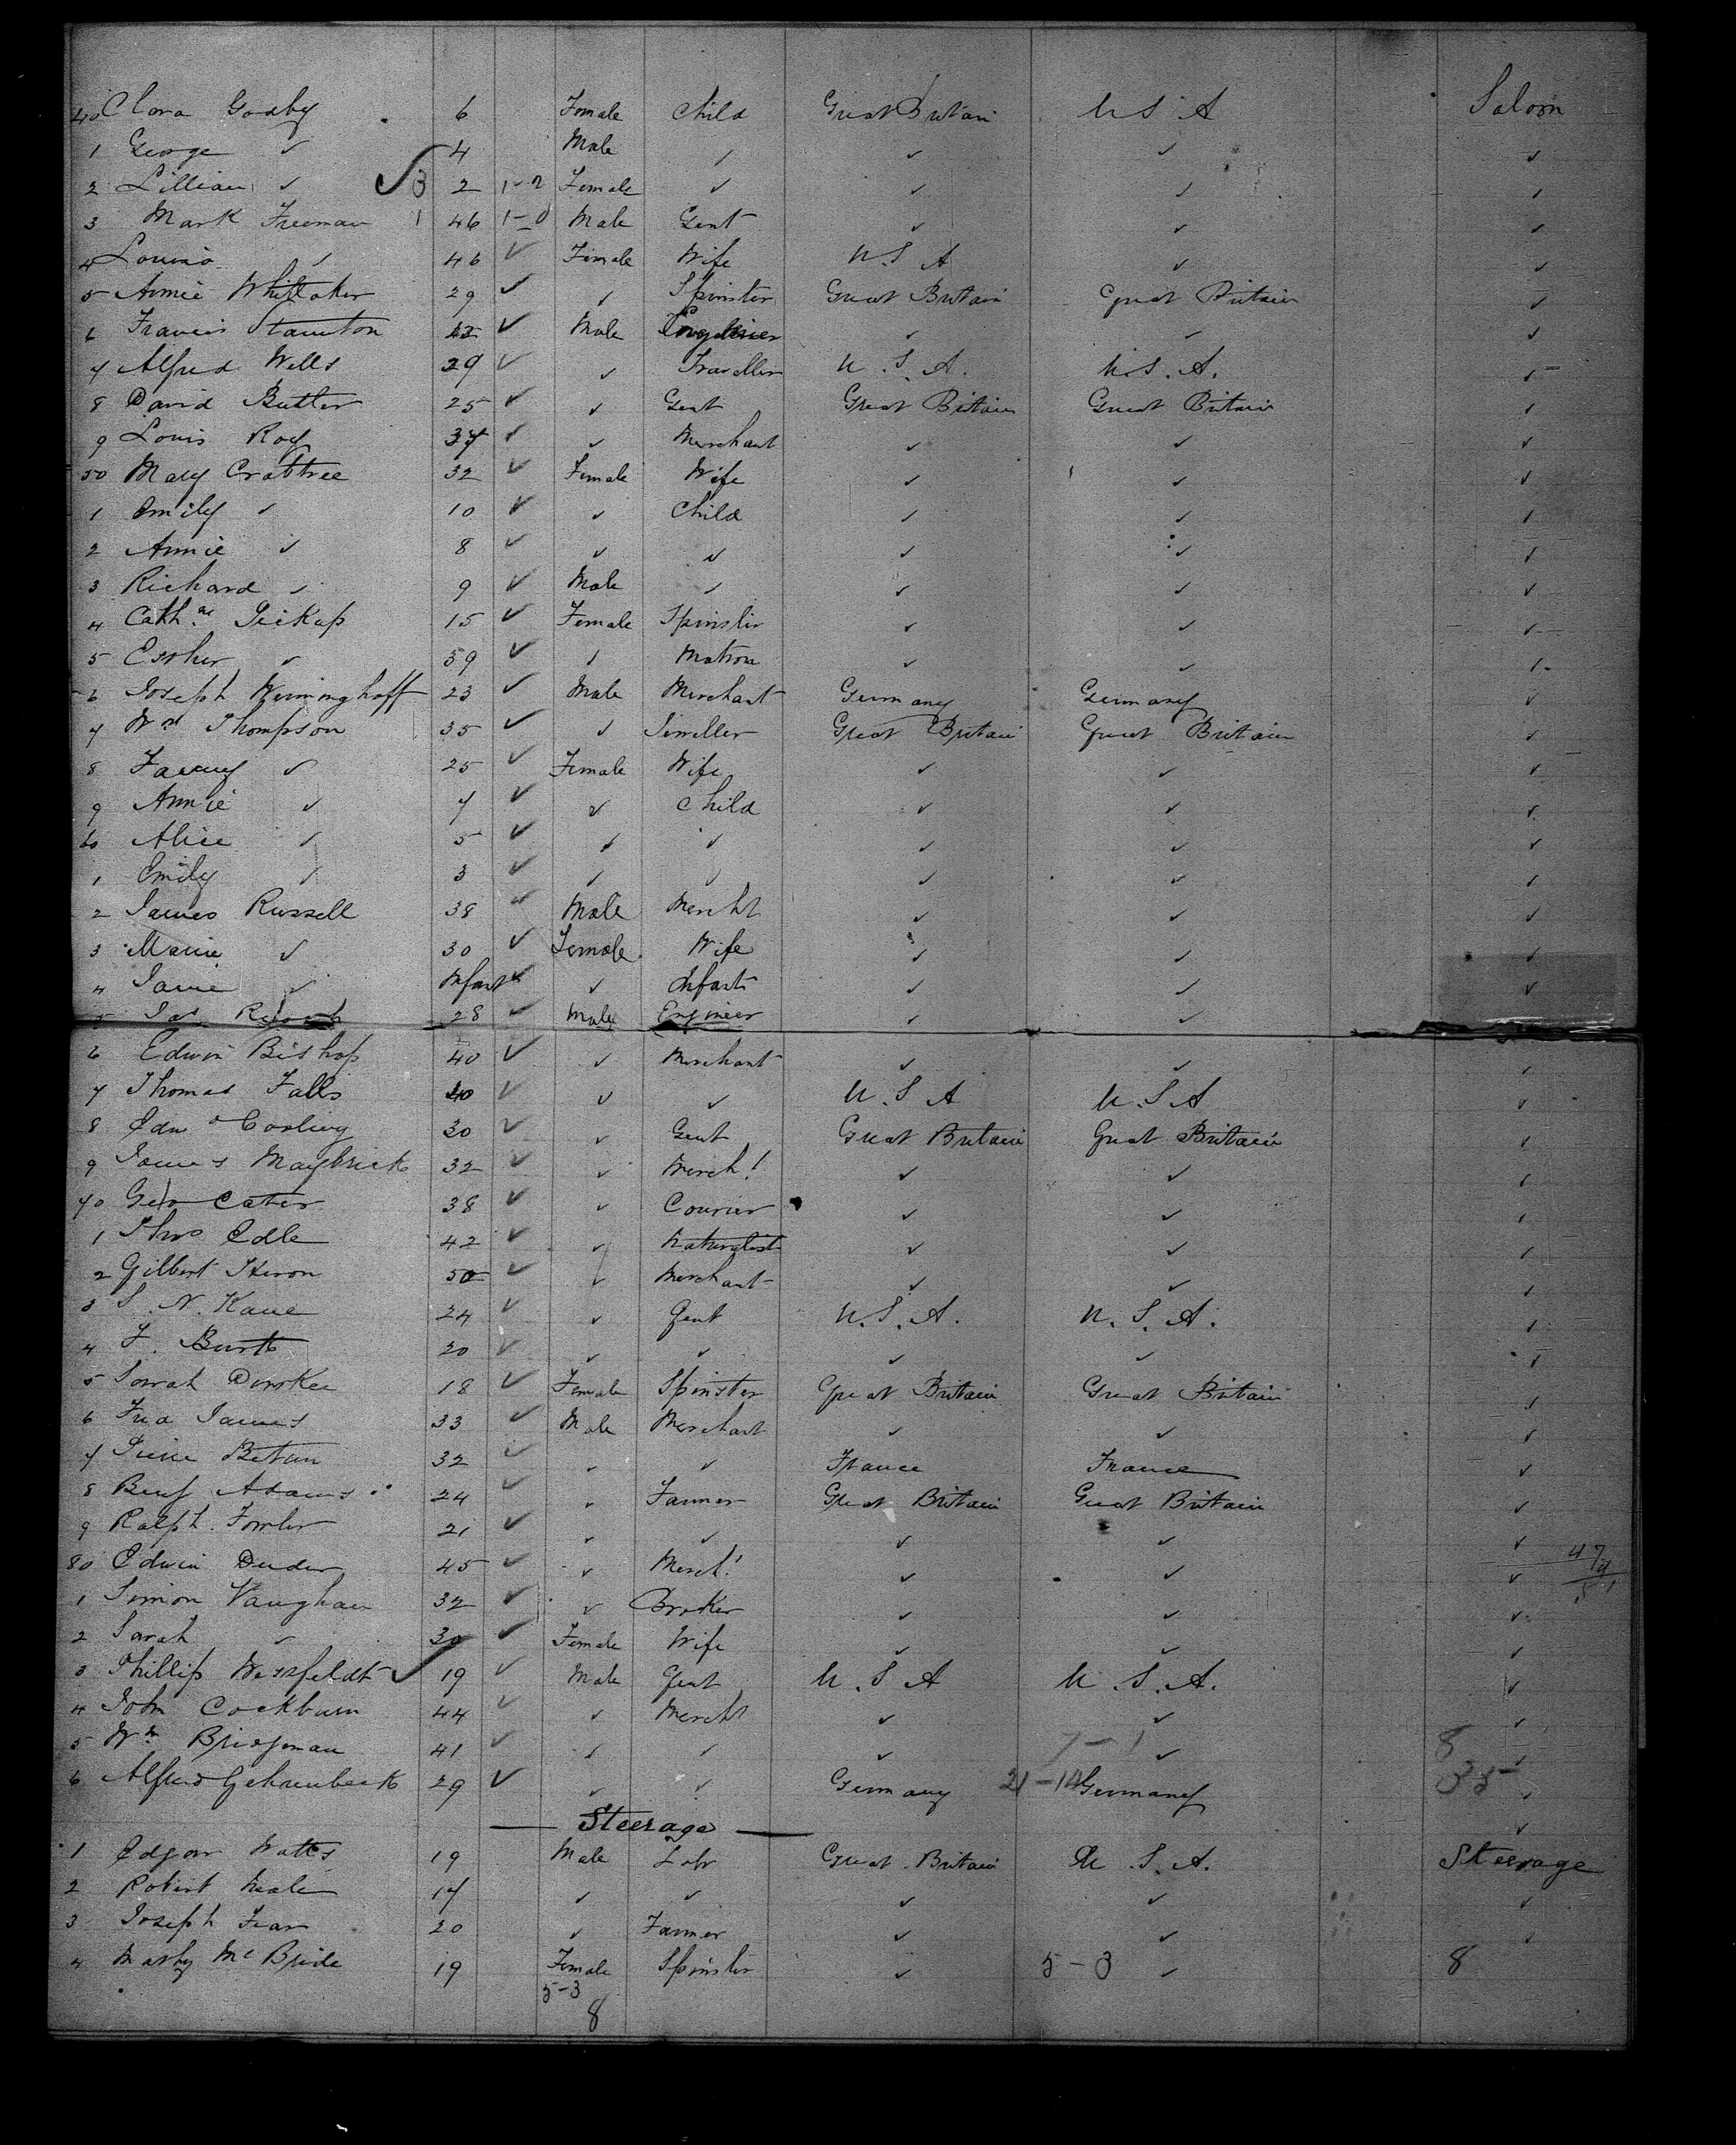 40 Clara Godby 6 Female Child Great Britain U S A Saloon
1 George ✓ 4 Male ✓ ✓ ✓ ✓
2 Lillian ✓ 3 2 1-2 Female ✓ ✓ ✓ ✓
3 Mark Freeman 1 46 1-0 Male Gent ✓ ✓ ✓
4 Louisa ✓ 46 ✓ Female Wife U S A ✓ ✓
5 Annie Whittaker 29 ✓ ✓ Spinster Great Britain Great Britain ✓
6 Francis Staunton ✓ Male ✓ ✓ ✓
7 Alfred Wells 29 ✓ ✓ Traveller U. S. A. U. S. A. ✓
8 David Butter 25 ✓ ✓ Gent Great Britain Great Britain ✓
9 Louis Roy 37 ✓ ✓ Merchant ✓ ✓ ✓
50 Mary Crabtree 32 ✓ Female Wife ✓ ✓ ✓
1 Emily ✓ 10 ✓ ✓ Child ✓ ✓ ✓
2 Annie ✓ 8 ✓ ✓ ✓ ✓ ✓ ✓
3 Richard ✓ 9 ✓ Male ✓ ✓ ✓ ✓
4 Cath.ne Pickup 15 ✓ Female Spinster ✓ ✓ ✓
5 Esther ✓ 59 ✓ ✓ Matron ✓ ✓ ✓
6 Joseph Wenninghoff 23 ✓ Male Merchant Germany Germany ✓
7 Wm Thompson 35 ✓ ✓ Jeweller Great Britain Great Britain ✓
8 Fanny ✓ 25 ✓ Female Wife ✓ ✓ ✓
9 Annie ✓ 7 ✓ ✓ Child ✓ ✓ ✓
60 Alice ✓ 5 ✓ ✓ ✓ ✓ ✓ ✓
1 Emily ✓ 3 ✓ ✓ ✓ ✓ ✓ ✓
2 James Russell 38 ✓ Male Mercht ✓ ✓ ✓
3 Marie ✓ 30 ✓ Female Wife ✓ ✓ ✓
4 ✓ Infant ✓ ✓ Infant ✓ ✓ ✓
5 Jas 28 ✓ Male Engineer ✓ ✓
6 Edwin Bishop 40 ✓ ✓ Merchant ✓ ✓ ✓
7 Thomas Falls 40 ✓ ✓ ✓ U. S. A U. S. A ✓
8 Edwd Cosling 30 ✓ ✓ Gent Great Britain Great Britain ✓
9 James Maybrick 32 ✓ ✓ Merch! ✓ ✓ ✓
70 Geo Cater 38 ✓ ✓ Courier ✓ ✓ ✓
1 Thos Edle 42 ✓ ✓ Naturalist ✓ ✓ ✓
2 Gilbert Heron 50 ✓ ✓ Merchant ✓ ✓ ✓
3 S. N. Kane 24 ✓ ✓ Gent U. S. A. U. S. A. ✓
4 F. Burtt 20 ✓ ✓ ✓ ✓ ✓ ✓
5 Sarah 18 ✓ Female Spinster Great Britain Great Britain ✓
6 Fred James 33 ✓ Male Merchant ✓ ✓ ✓
7 Pierre Betun 32 ✓ ✓ ✓ France France ✓
8 Benj Adams 24 ✓ ✓ Farmer Great Britain Great Britain ✓
9 Ralph Fowler 21 ✓ ✓ ✓ ✓ ✓ ✓
80 Edwin Deeder 45 ✓ ✓ Merch! ✓ ✓ ✓ 47
1 Simon Vaughan 32 ✓ ✓ Broker ✓ ✓ ✓
2 Sarah ✓ 30 ✓ Female Wife ✓ ✓ ✓
3 Phillip Westfeldt ✓ 19 ✓ Male Gent U. S. A U. S. A. ✓
4 John Cockburn 44 ✓ ✓ Mercht ✓ ✓ ✓
5 Wm Bridgman 41 ✓ ✓ ✓ ✓ 7-1 ✓ 8 ✓
6 Alfred Gehrenbeck 29 ✓ ✓ ✓ Germany 21-14 Germany 35 ✓
Steerage ✓
1 Edgar Watts 19 Male Labr Great Britain U. S. A. Steerage
2 Robert Neale 17 ✓ ✓ ✓ ✓ ✓
3 Joseph Fear 20 ✓ Farmer ✓ ✓ ✓
4 McBride 19 Female Spinster ✓ 5-3 ✓ 8
5-3
8